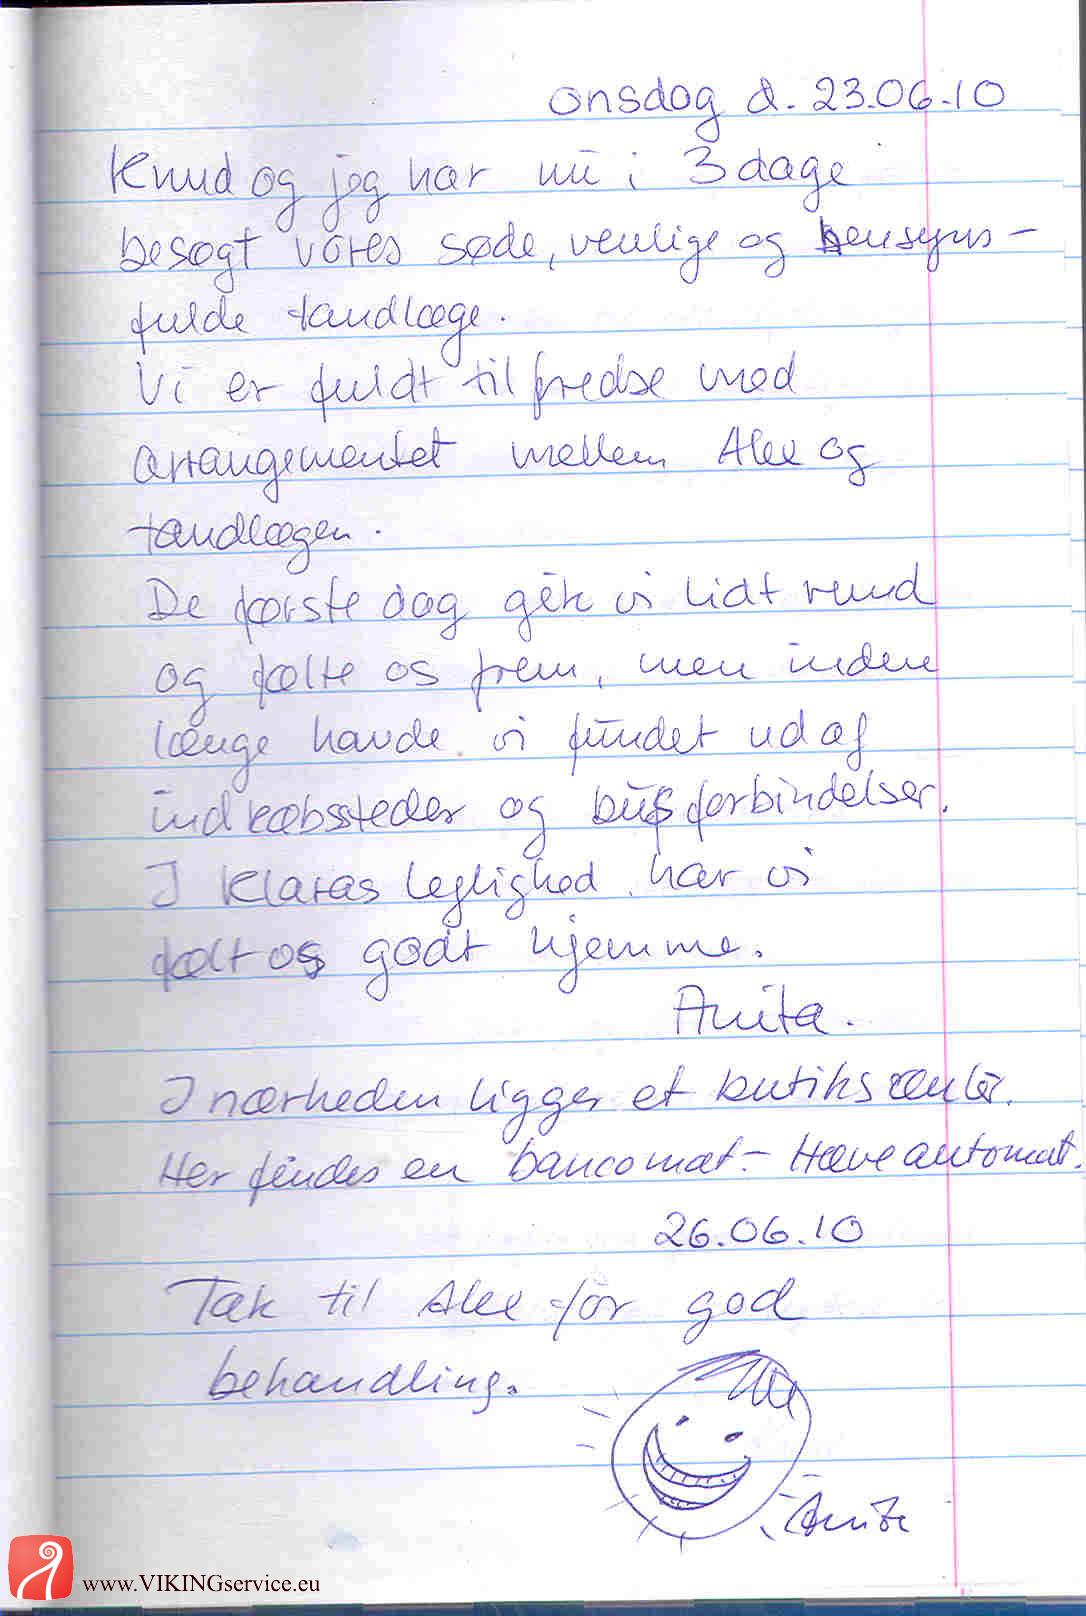 onsdag d. 23.06.10
Knud og jeg har nu i 3 dage
besøgt vores søde, venlige og hensyns-
fulde tandlæge.
Vi er fuldt tilfredse med
arrangementet mellem Alex og
tandlægen.
De første dag gik vi lidt rund
og følte os frem, men inden
længe havde vi fundet ud af
indkøbssteder og busforbindelser.
I Klaras leglighed har vi
følt os godt hjemme.
Anita.
I nærheden ligger et butikscenter.
Her findes en bancomat - Hæveautomat.
26.06.10
Tak til Alex for god
behandling.
Anita
www.VIKINGservice.eu